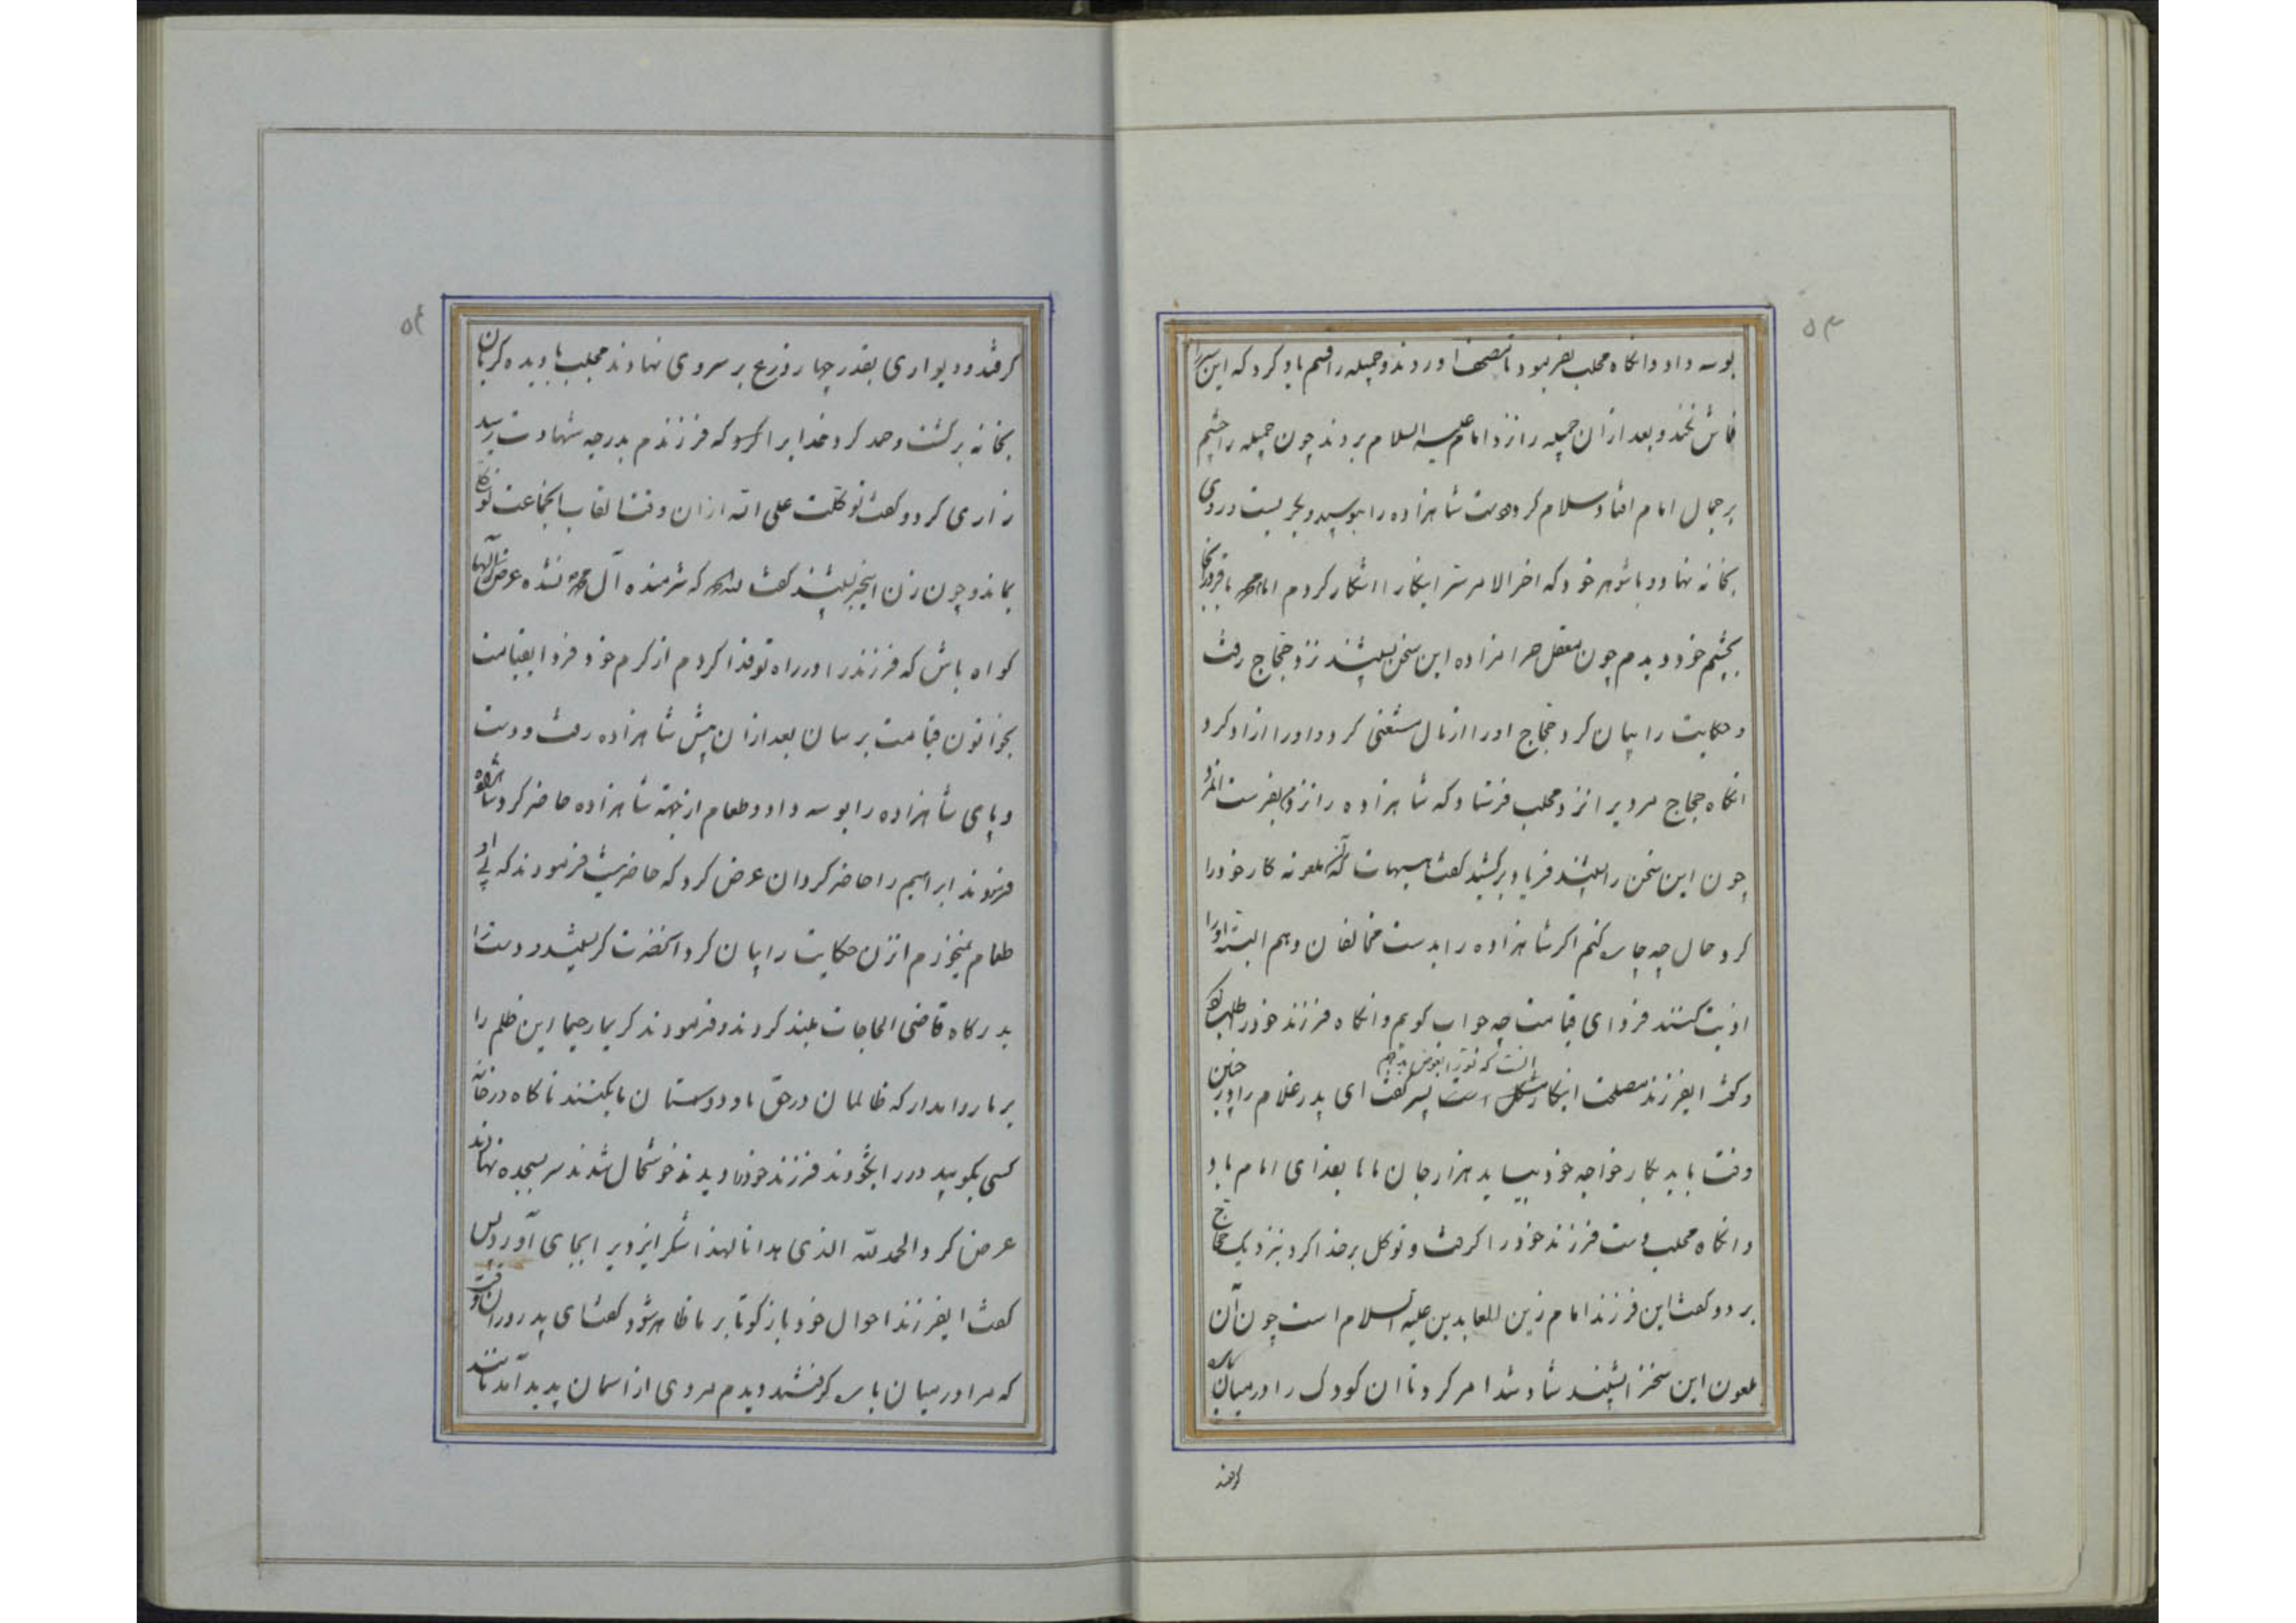 ۵۳
بوسه داد وانکاه محلب بفرمود تا مصحف اوردند و جمیله را قسم یاد کرد که این سر را
فاش نکند و بعد ازان جمیله را نزد امام علیه السلام بردند چون جمیله را چشم
بر جمال امام افتاد سلام کرد و دست شاهزاده را ببوسید و بگریست و روی
بخانه نهاد و با شوهر خود که اخر الامر سر اینکار را اشکار کردم امام محمد باقر را
بچشم خود دیدم چون معقل حرامزاده این سخن بشنید نزد حجاج رفت
و حکایت را بیان کرد حجاج اورا ازمال مستغنی کرد و اورا ازاد کرد
انکاه حجاج مردیرا نزد محلب فرستاد که شاهزاده را نزد من بفرست
چون این سخن را بشنید فریاد برکشید کفت هیهات که آن ملعونه کار خود را
کرد حال چه چاره کنم اکر شاهزاده را بدست مخالفان دهم البته اورا
اذیت کنند فردای قیامت چه جواب کویم وانکاه فرزند خود را طلب کرد
و کفت ایفرزند مصلحت اینکار مشکل است پسر کفت ای پدر غلام را در چنین
انست که تورا بعوض بدهم
وقت باید بکار خواجه خود بیاید هزار جان ما بفدای امام باد
وانکاه محلب دست فرزند خود را کرفت و توکل بر خدا کرد بنزدیک حجاج
برد و کفت این فرزند امام زین العابدین علیه السلام است چون آن
ملعون این سخن را شنید شاد شد امر کرد تا ان کودک را در میان باره
کرفتند
۵۴
کرفتند و دیواری بقدر چهار ذرع بر سر وی نهادند محلب با دیده کریان
بخانه برکشت و حمد کرد خدایرا که فرزندم بدرجه شهادت رسید
زاری کرد و کفت توکلت علی الله ازان وقت القاب بجماعت توکلی
بماند و چون زن اینخبر بشنید کفت لله الحمد که شرمنده آل محمد نشده عرض کرد الها
کواه باش که فرزند را در راه تو فدا کردم از کرم خود فردا بقیامت
بخواتون قیامت برسان بعد ازان پیش شاهزاده رفت و دست
و پای شاهزاده را بوسه داد و طعام از جهته شاهزاده حاضر کرد شاهزاده
فرمودند ابراهیم را حاضر کردان عرض کرد که حاضر نیست فرمودند که بی او
طعام نمیخورم انزن حکایت را بیان کرد انحضرت کریست و دست را
بدرکاه قاضی الحاجات بلند کردند و فرمودند کریما رحیما این ظلم را
بر ما روا مدار که ظالمان در حق ما و دوستان ما بکنند ناکاه در خانه
کسی بکوبید در را بکشودند فرزند خود را دیدند خوشحال شدند سر بسجده نهادند
عرض کرد والحمد لله الذی هدانا لهذا شکر ایزدیرا بجای آورد پس
کفت ایفرزند احوال خود باز کو تا بر ما ظاهر شود کفت ای پدر دران وقت
که مرا در میان باره کرفتند دیدم مردی از اسمان پدید آمد مانند